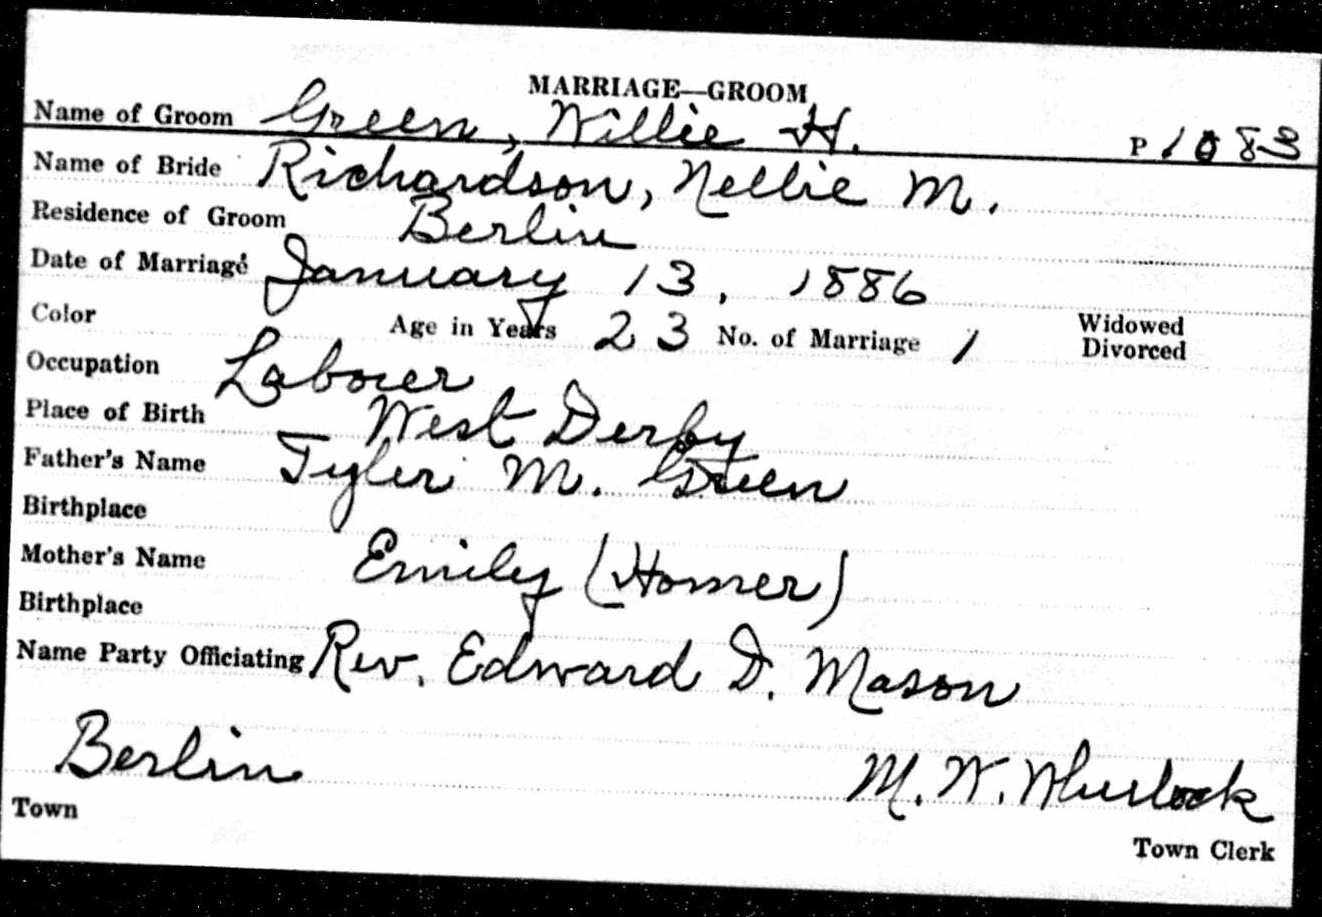 MARRIAGE—GROOM
Name of Groom Green, Willie H. P 1083
Name of Bride Richardson, Nellie M.
Residence of Groom Berlin
Date of Marriage January 13, 1886
Color Age in Years 23 No. of Marriage 1 Widowed Divorced
Occupation Laborer
Place of Birth West Derby
Father's Name Tyler M. Green
Birthplace
Mother's Name Emily (Homer)
Birthplace
Name Party Officiating Rev. Edward D. Mason
Berlin M. W. Whurlock
Town Town Clerk